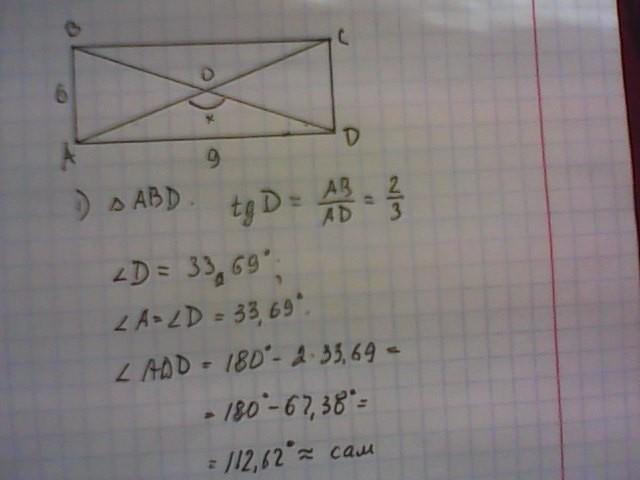 B C
O
6 x
A 9 D
1) △ ABD. tg D = AB/AD = 2/3
∠D = 33,69°;
∠A = ∠D = 33,69°.
∠AOD = 180° - 2·33,69 =
= 180° - 67,38° =
= 112,62° ≈ сам